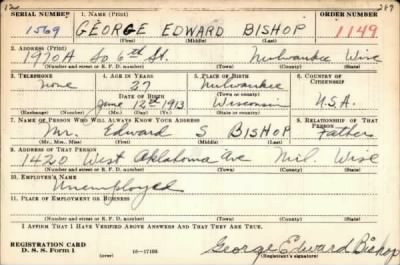 SERIAL NUMBER 1. NAME (Print) ORDER NUMBER
1569 GEORGE EDWARD BISHOP 1149
(First) (Middle) (Last)
2. ADDRESS (Print)
1970A So. 6th St. Milwaukee Wisc
(Number and street or R. F. D. number) (Town) (County) (State)
3. TELEPHONE 4. AGE IN YEARS 5. PLACE OF BIRTH 6. COUNTRY OF CITIZENSHIP
None 27 Milwaukee
DATE OF BIRTH (Town or county)
June 12th 1913 Wisconsin U.S.A.
(Exchange) (Number) (Mo.) (Day) (Yr.) (State or country)
7. NAME OF PERSON WHO WILL ALWAYS KNOW YOUR ADDRESS 8. RELATIONSHIP OF THAT PERSON
Mr. Edward S BISHOP Father
(Mr., Mrs., Miss) (First) (Middle) (Last)
9. ADDRESS OF THAT PERSON
1420 West Oklahoma Ave Mil. Wisc
(Number and street or R. F. D. number) (Town) (County) (State)
10. EMPLOYER'S NAME
Unemployed
11. PLACE OF EMPLOYMENT OR BUSINESS
(Number and street or R. F. D. number) (Town) (County) (State)
I AFFIRM THAT I HAVE VERIFIED ABOVE ANSWERS AND THAT THEY ARE TRUE.
REGISTRATION CARD
D. S. S. Form 1 (over) 16—17105 George Edward Bishop
(Registrant's signature)